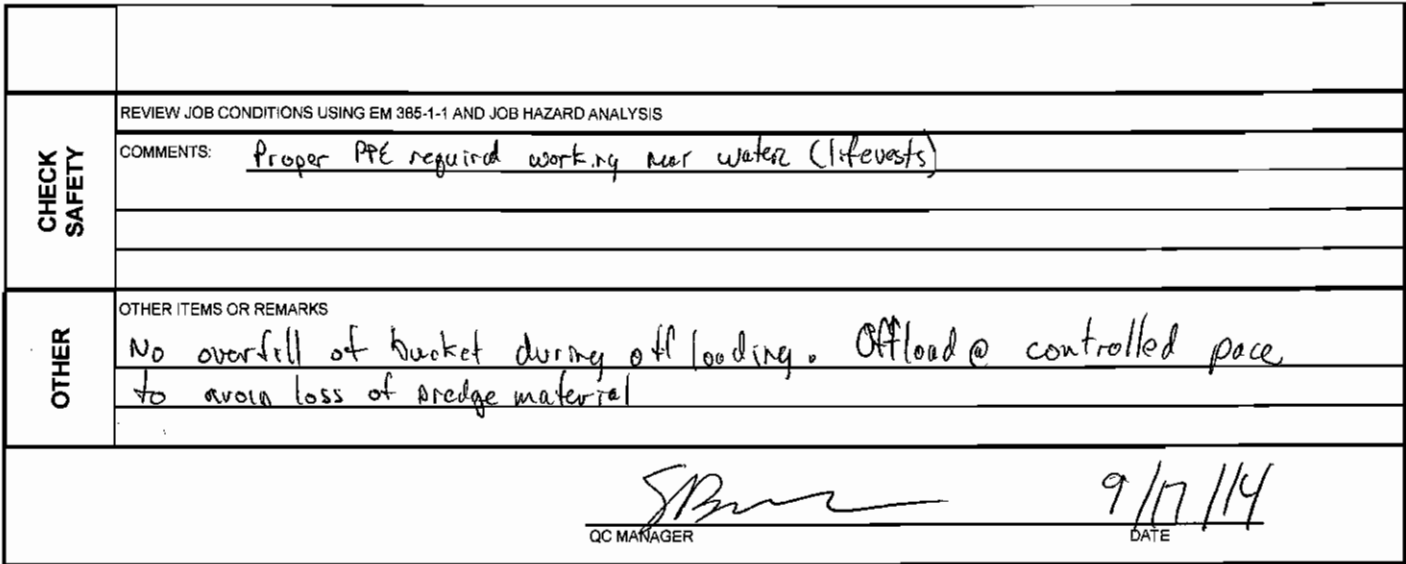 CHECK
SAFETY
REVIEW JOB CONDITIONS USING EM 385-1-1 AND JOB HAZARD ANALYSIS
COMMENTS: Proper PPE required working near water (lifevests)
OTHER
OTHER ITEMS OR REMARKS
No overfill of bucket during offloading. Offload @ controlled pace
to avoid loss of dredge material
9/17/14
QC MANAGER DATE